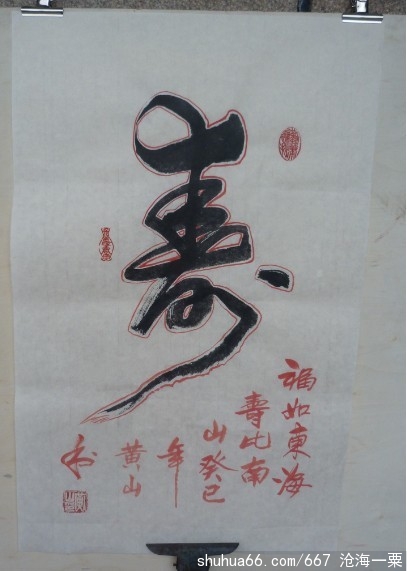 寿
福如東海
壽比南
山癸巳
年
黄山
shuhua66.com/667 沧海一粟